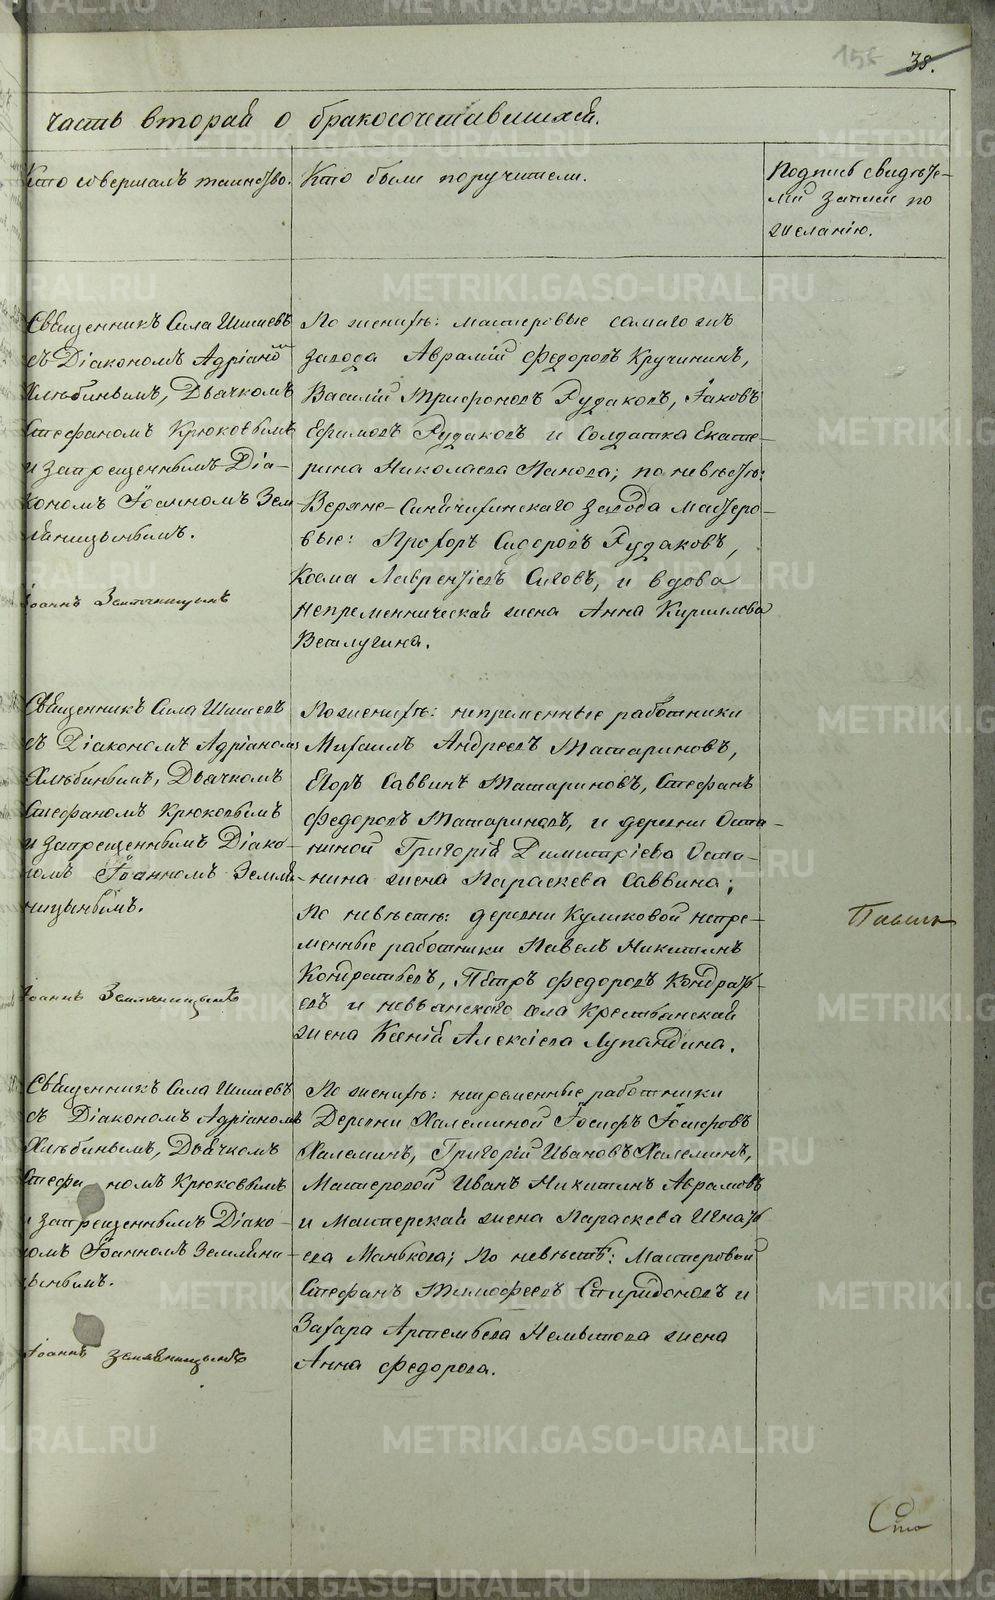 38.
часть вторая о бракосочетавшихся.
Кто совершалъ таинство.
Кто были поручители.
Подпись свидѣте-
лей записи по
желанію.
Священникъ Сила Шишевъ
съ Діакономъ Адріаномъ
Хлѣбинымъ, Дьячкомъ
Стефаномъ Крюковымъ
и запрещеннымъ Діа-
кономъ Іоанномъ Зем
ляницынымъ.
Іоаннъ Земляницынъ
По женихѣ: мастеровые самаго
завода Аврамій Федоровъ Кручининъ,
Василій Трифоновъ Рудаковъ, Іаковъ
Ефимовъ Рудаковъ и Солдатка Екате-
рина Николаева Панова; по невѣстѣ:
Верхне-Синячихинскаго завода Мастеро-
вые: Прохоръ Сидоровъ Рудаковъ,
Косма Лаврентіевъ Сизовъ, и вдова
Непременническая жена Анна Кириллова
Ветлугина.
Священникъ Сила Шишевъ
съ Діакономъ Адріаномъ
Хлѣбинымъ, Дьячкомъ
Стефаномъ Крюковымъ
и запрещеннымъ Діако-
номъ Іоанномъ Земля-
ницынымъ.
Іоаннъ Земляницынъ
По женихѣ: непременные работники
Михаилъ Андреевъ Татариновъ,
Егоръ Саввинъ Татариновъ, Стефанъ
Федоровъ Татариновъ, и деревни Оста-
ниной Григорія Димитріева Оста-
нина жена Параскева Саввина;
По невѣстѣ: деревни Куликовой непре-
менные работники Павелъ Никитинъ
Кондратьевъ, Петръ Федоровъ Кондрать-
евъ и невьянского села Крестьянская
жена Ксенія Алексіева Лупандина.
Павелъ
Священникъ Сила Шишевъ
съ Діакономъ Адріаномъ
Хлѣбинымъ, Дьячкомъ
Стефаномъ Крюковымъ
и запрещеннымъ Діако-
номъ Іоанномъ Земляни-
цынымъ.
Іоаннъ Земляницынъ
По женихѣ: непременные работники
Деревни Халеминой Іосифъ Іосифовъ
Халеминъ, Григорій Ивановъ Халеминъ,
Мастеровой Иванъ Никитинъ Аврамовъ
и Мастерская жена Параскева Игнать
ева Манькова; По невѣстѣ: Мастеровой
Стефанъ Тимофеевъ Спиридоновъ и
Захара Артемьева Немытова жена
Анна Федорова.
Сто
METRIKI.GASO-URAL.RU